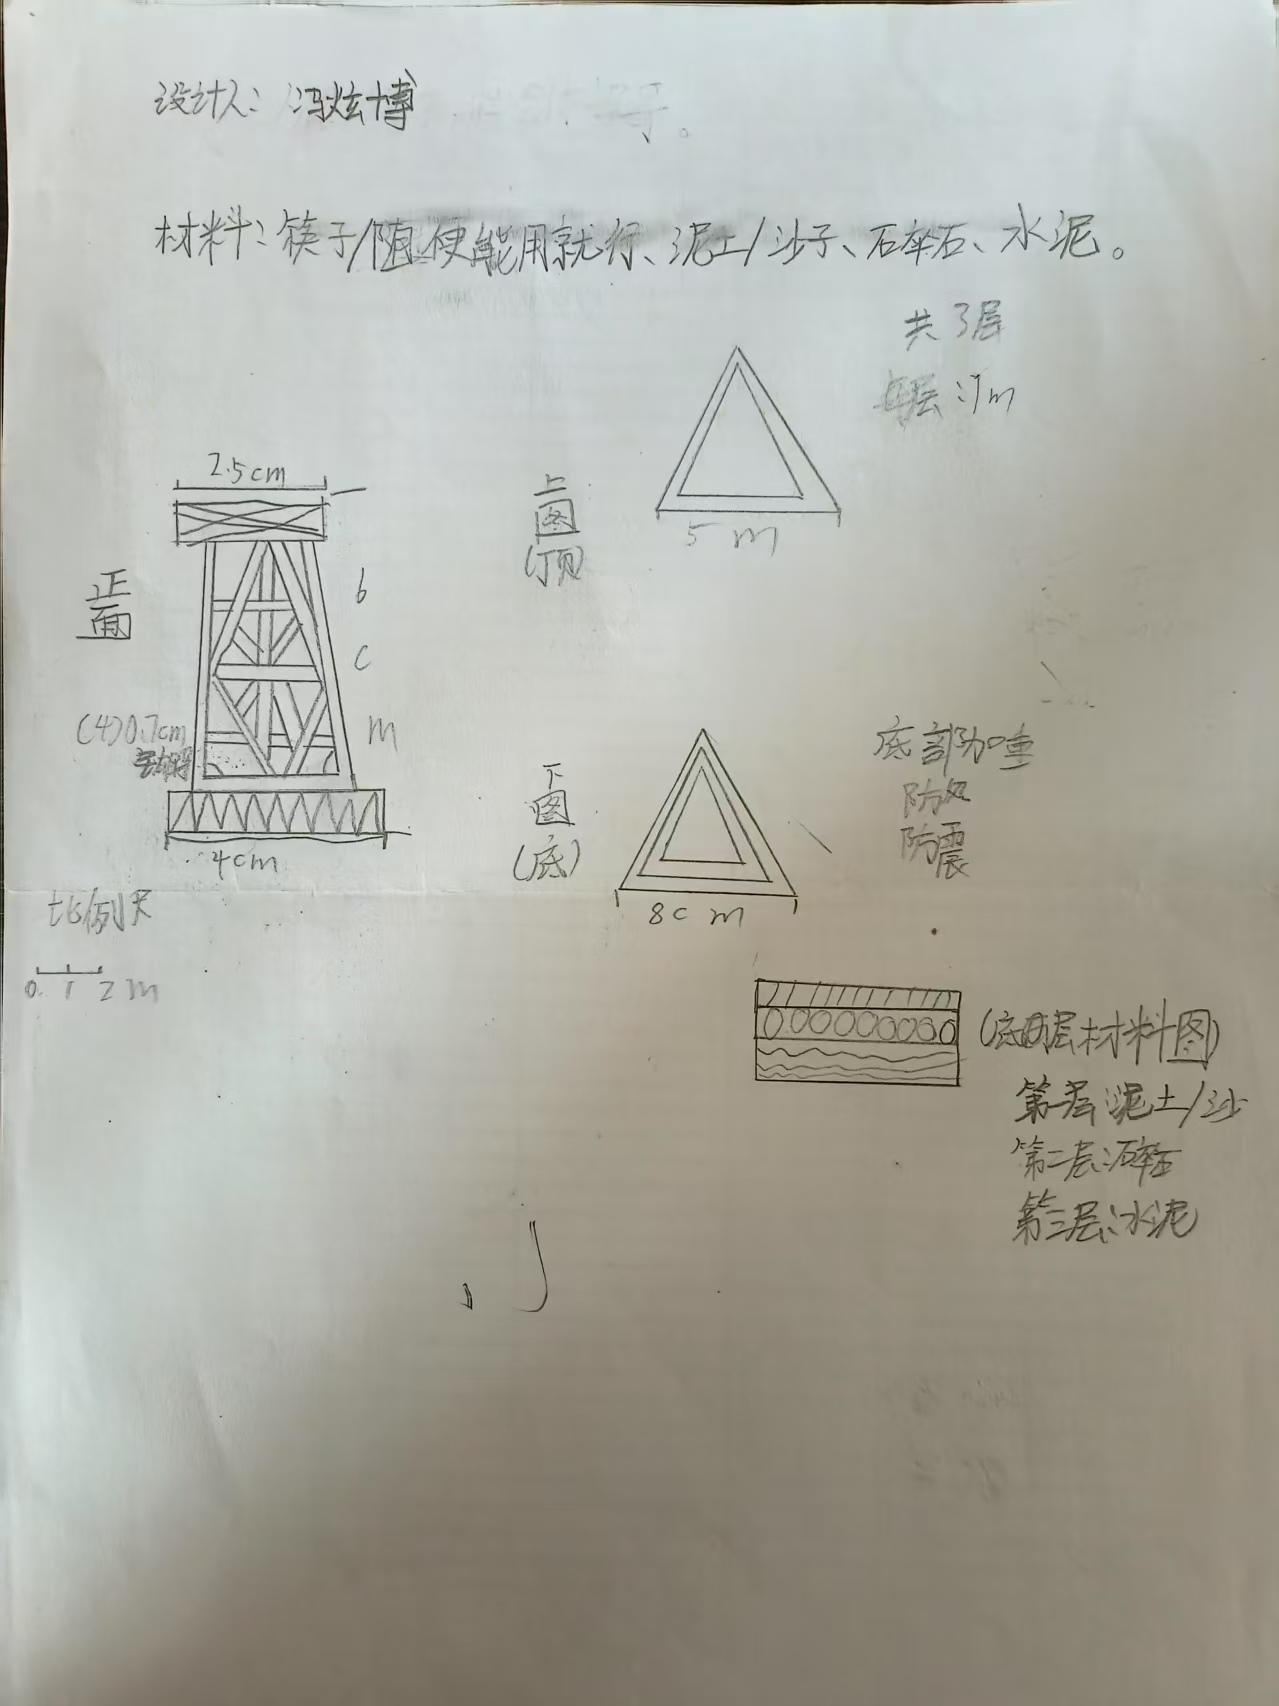 设计人：冯炫博
材料：筷子/随便能用就行、泥土/沙子、碎石、水泥。
共3层
每层：1m
2.5cm
上
图
(顶)
5 m
正
面
6
c
m
(4)0.7cm
4cm
下
图
(底)
8c m
底部加重
防风
防震
比例尺
0 1 2 m
(底面层材料图)
第一层：泥土/沙
第二层：碎石
第三层：水泥